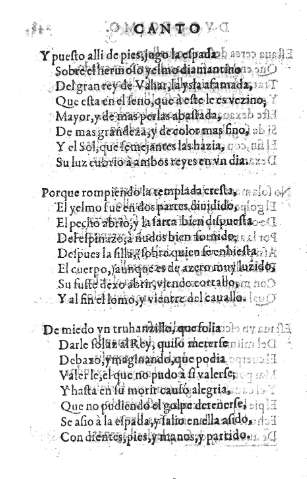 CANTO
Y puesto alli de pies, jugo la espada
Sobre el hermoso yelmo diamantino
Del gran rey de Vahar, la ysla afamada,
Que esta en el seno, que a este le es vezino;
Mayor, y de mas perlas abastada,
De mas grandeza, y de color mas fino,
Y el Sol, que semejantes las hazia,
Su luz cubrio a ambos reyes en vn dia.
Porque rompiendo la templada cresta,
El yelmo fue en dos partes diuidido,
El pecho abrio, y la sarta bien dispuesta
Del espinazo, a ñudos bien fornido;
Despues la silla, sobre quien se enhiesta
El cuerpo, aunque es de azero muy luzido,
Su fuste dexo abrir, viendo cortallo,
Y al fin el lomo, y vientre del cauallo.
De miedo vn truhanzillo, que solia
Darle solaz al Rey, quiso meterse
Debaxo, ymaginando, que podia
Valerle, el que no pudo a si valerse;
Y hasta en su morir causó alegria,
Que no pudiendo el golpe detenerse,
Se asio a la espada, y salio en ella asido,
Con dientes, pies, y manos, y partido.